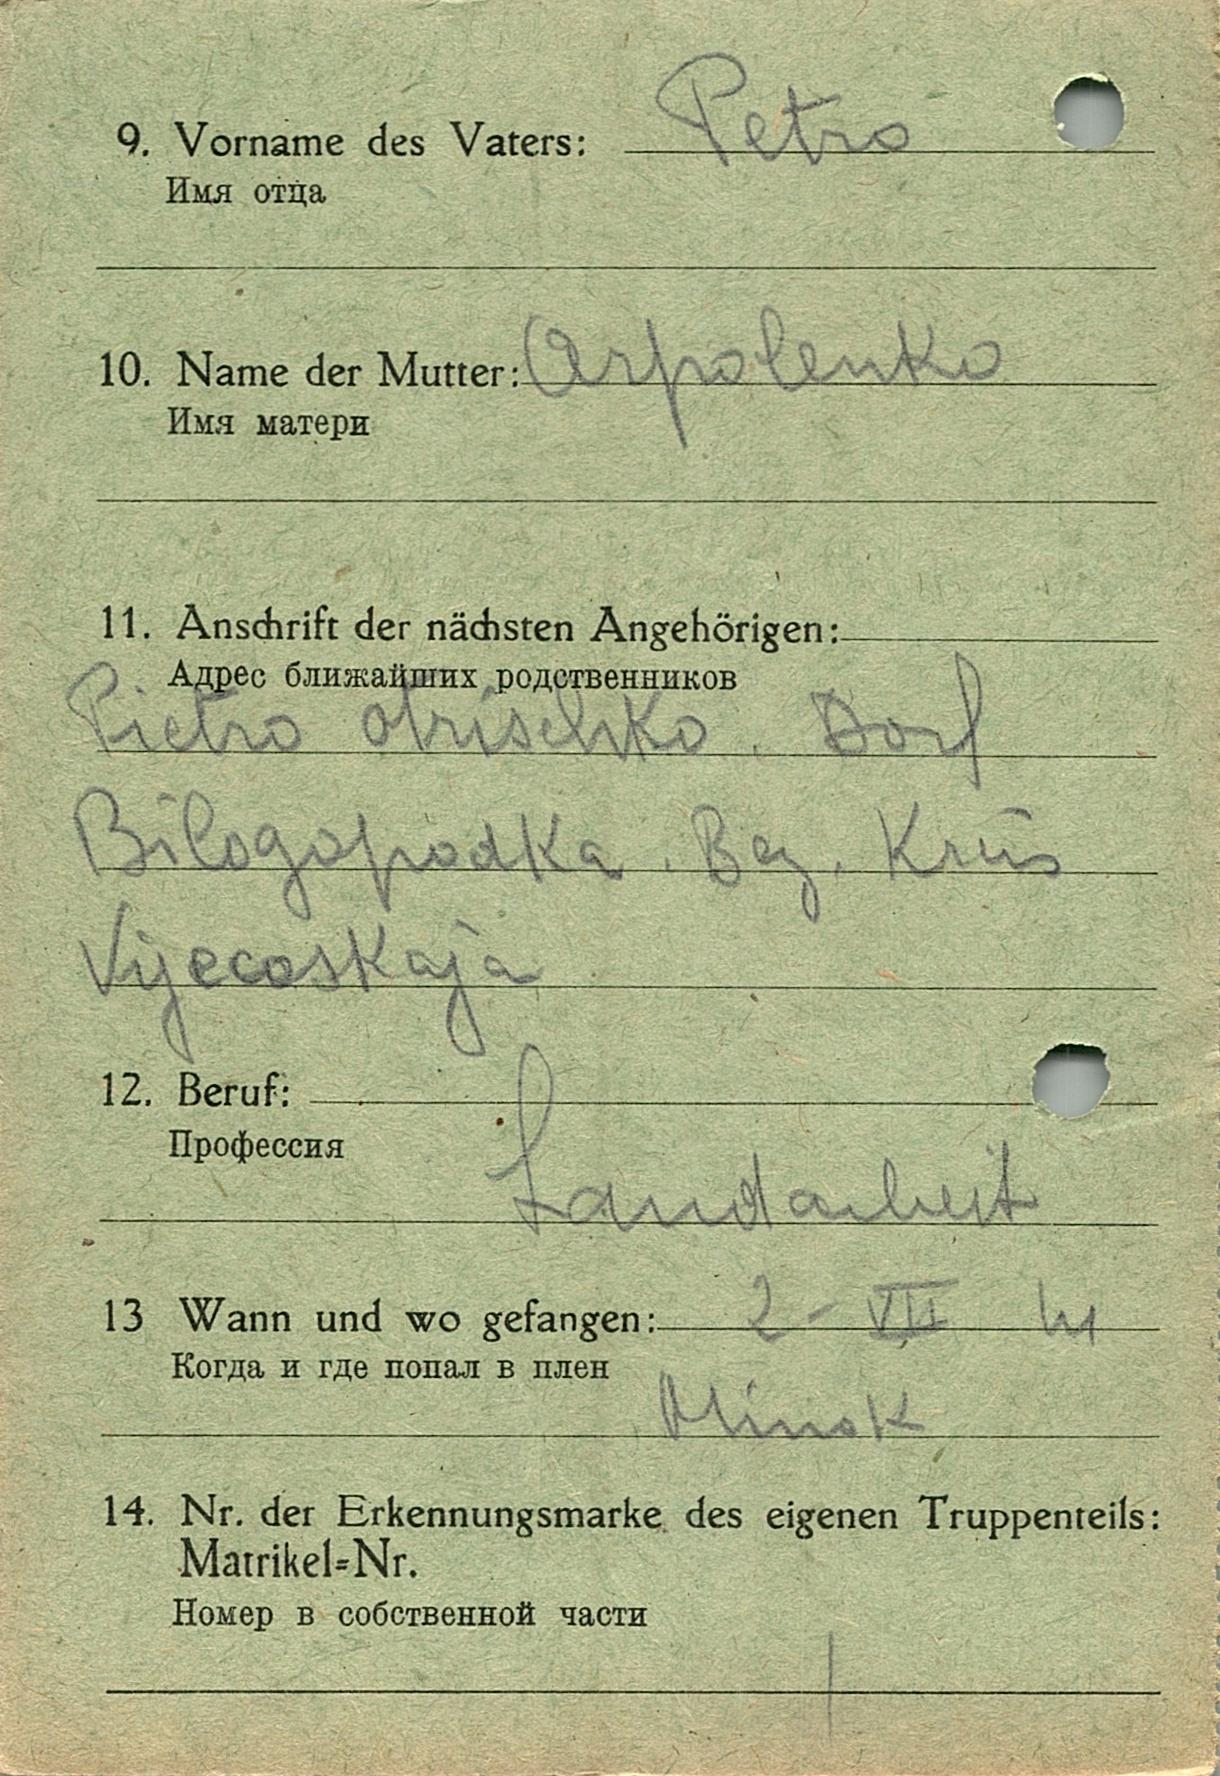 9. Vorname des Vaters: Petro
Имя отца
10. Name der Mutter: Arpolenko
Имя матери
11. Anschrift der nächsten Angehörigen:
Адрес ближайших родственников
Pietro Otrischko. Dorf
Bilogopodka. Bez.
Vijecoskaja
12. Beruf:
Профессия
Landarbeit
13 Wann und wo gefangen: 2-VII 41
Когда и где попал в плен
Minsk
14. Nr. der Erkennungsmarke des eigenen Truppenteils:
Matrikel=Nr.
Номер в собственной части